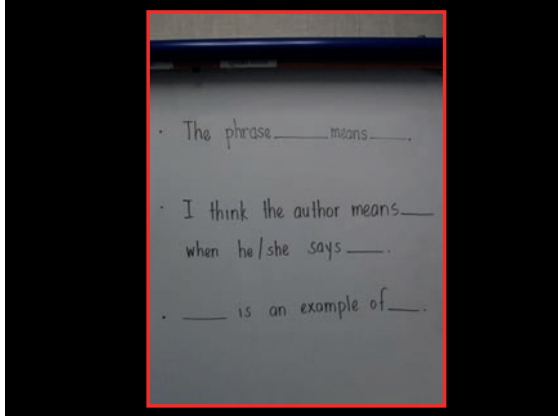 • The phrase______means____.
• I think the author means____
when he/she says ____.
• ____ is an example of ____.